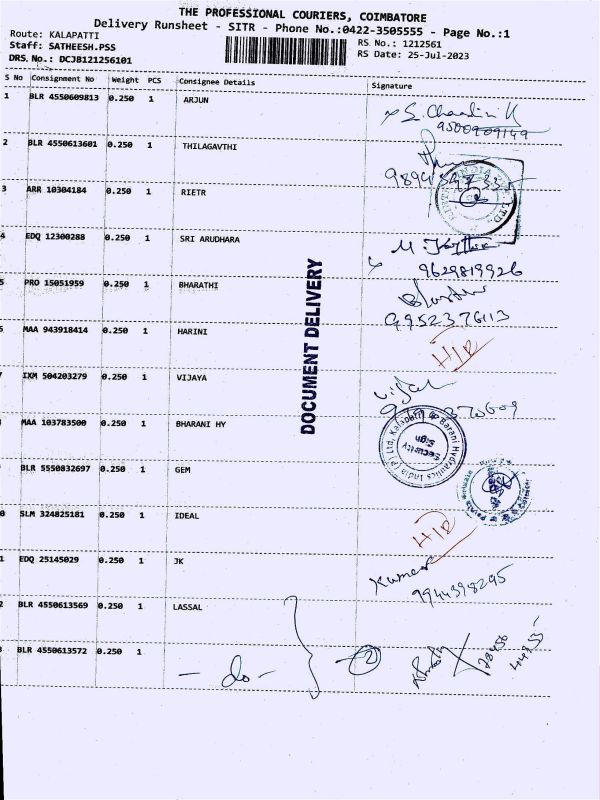 THE PROFESSIONAL COURIERS, COIMBATORE
Delivery Runsheet - SITR - Phone No.:0422-3505555 - Page No.:1
Route: KALAPATTI
RS No.: 1212561
Staff: SATHEESH.PSS
RS Date: 25-Jul-2023
DRS. No.: DCJB121256101
S No Consignment No Weight PCS Consignee Details Signature
1 BLR 4550609813 0.250 1 ARJUN
9500909149
2 BLR 4550613601 0.250 1 THILAGAVTHI
3 ARR 10304184 0.250 1 RIETR
4 EDQ 12300288 0.250 1 SRI ARUDHARA
9629819926
5 PRO 15051959 0.250 1 BHARATHI
9952376113
MAA 943918414 0.250 1 HARINI
H/R
IXM 504203279 0.250 1 VIJAYA
MAA 103783500 0.250 1 BHARANI HY
Security Sign
BLR 5550832697 0.250 1 GEM
0 SLM 324825181 0.250 1 IDEAL
H/R
1 EDQ 25145029 0.250 1 JK
Kumar
9944398295
2 BLR 4550613569 0.250 1 LASSAL
BLR 4550613572 0.250 1
- do -
2
DOCUMENT DELIVERY